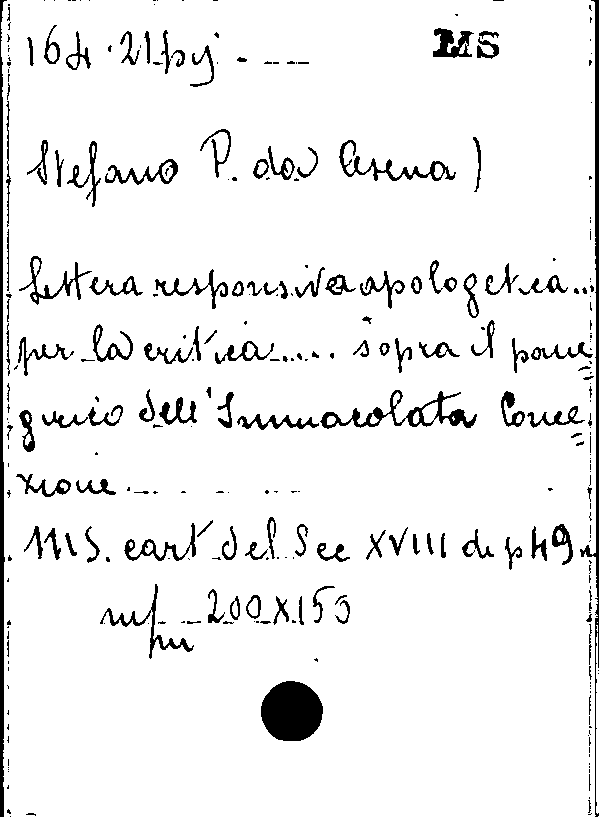 164 · 21 MS
Stefano P. da Arena)
Lettera responsiva apologetica...
per la critica..... sopra il pane
girico dell'Immacolata Conce
zione
MS. cart del Sec XVIII di p 49
200 X 150